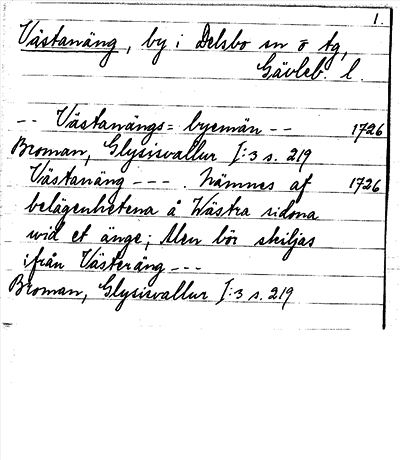 1.
Västanäng, by i Delsbo sn o tg,
Gävleb. l.
-- Västanängs= byemän -- 1726
Broman, Glysisvallur I:3 s. 219
Västanäng --- . Nämnes af 1726
belägenhetena å Wästra sidona
wid et änge; Men bör skiljas
ifrån Västeräng ---
Broman, Glysisvallur I:3 s. 219